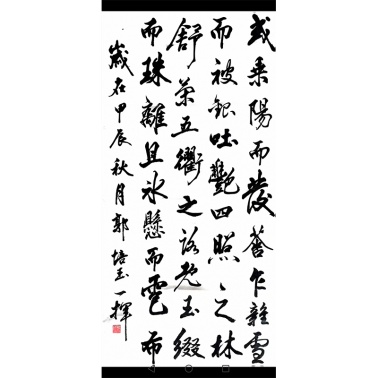 或乘陽而發乍雜雪
而被銀吐艷四照之林
舒榮五衢之路既玉綴
而珠離且冰懸而雹布
歲在甲辰秋月郭培玉一揮